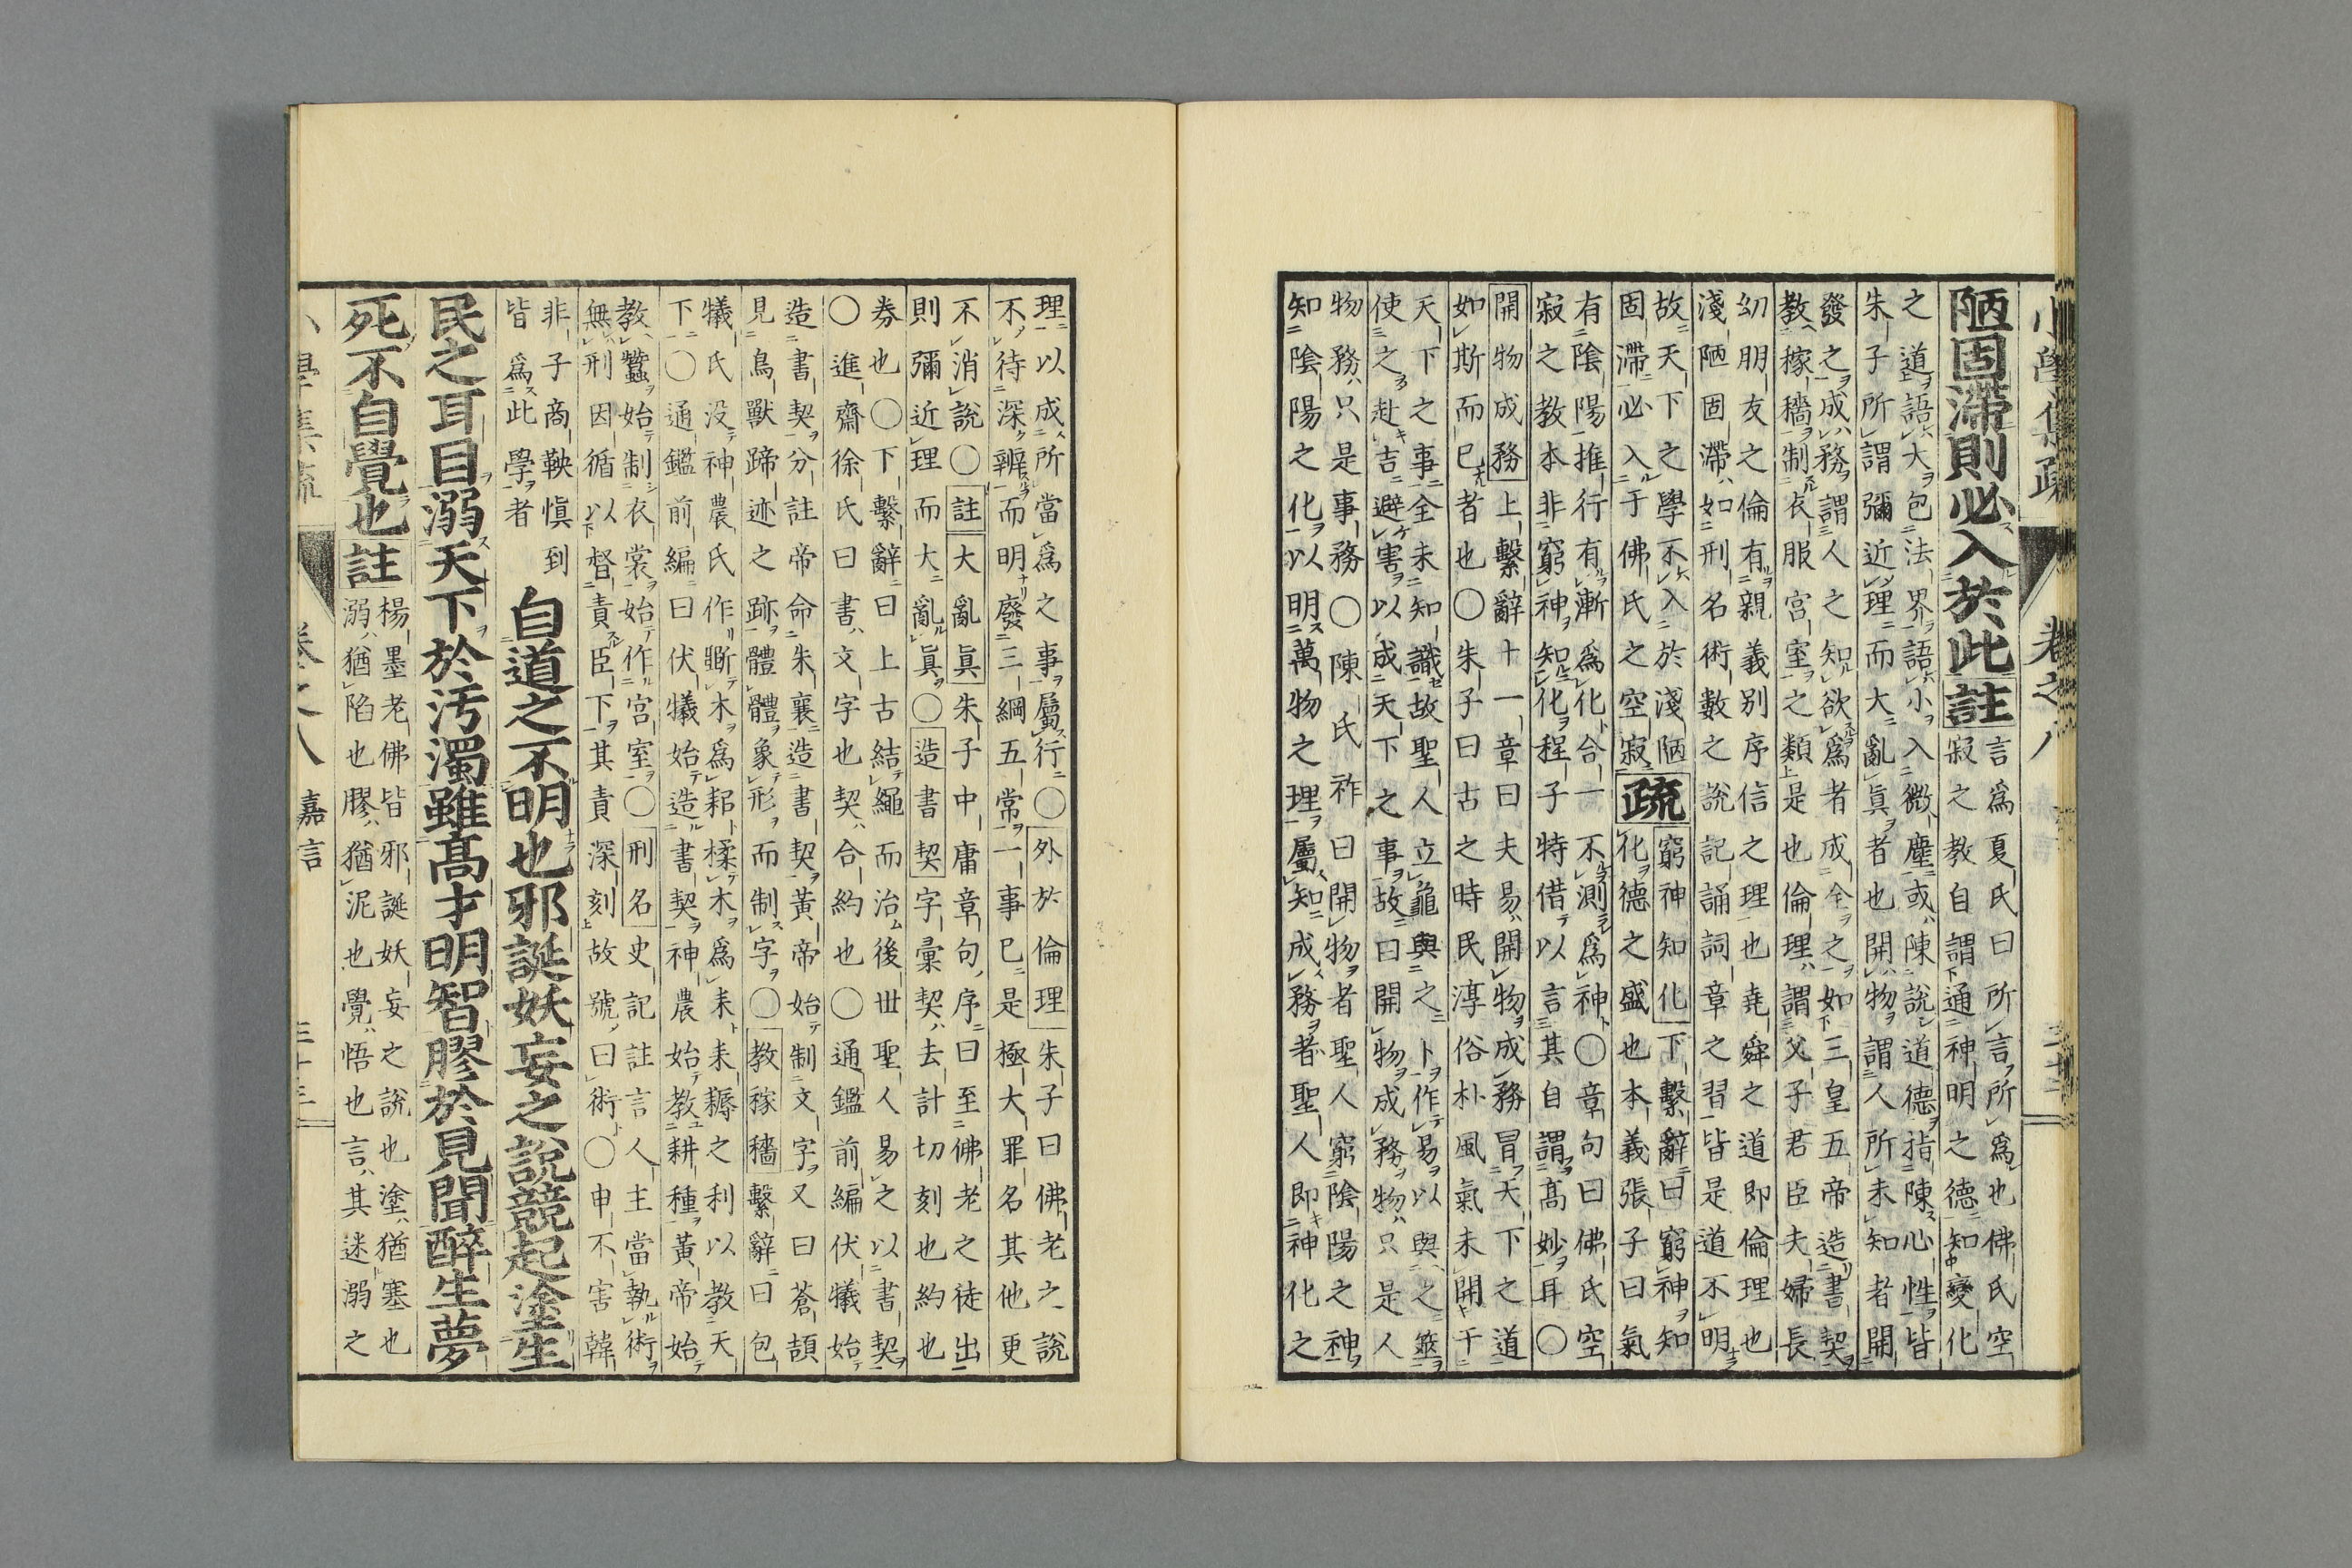 小學集疏 卷之八
陋固滯則必入於此註
言爲夏氏曰所言所爲也佛氏空
寂之教自謂通神明之德知變化
之道語大包法界語小入微塵或陳說道德指陳心性皆
朱子所謂彌近理而大亂眞者也開物謂人所未知者開
發之成務謂人之知欲爲者成全之如三皇五帝造書契
教稼穡制衣服宮室之類是也倫理謂父子君臣夫婦長
幼朋友之倫有親義別序信之理也堯舜之道即倫理也
淺陋固滯如刑名術數之說記誦詞章之習皆是道不明
故天下之學不入於淺陋
固滯必入于佛氏之空寂
疏
窮神知化下繫辭曰窮神知
化德之盛也本義張子曰氣
有陰陽推行有漸爲化合一不測爲神〇章句曰佛氏空
寂之教本非窮神知化程子特借以言其自謂高妙耳〇
開物成務上繫辭十一章曰夫易開物成務冒天下之道
如斯而已者也〇朱子曰古之時民淳俗朴風氣未開于
天下之事全未知識故聖人立龜與之卜作易以與之筮
使之赴吉避害以成天下之事故曰開物成務物只是人
物務只是事務〇陳氏祚曰開物者聖人窮陰陽之神
知陰陽之化以明萬物之理屬知成務者聖人即神化之
理以成所當爲之事屬行〇外於倫理朱子曰佛老之說
不待深辨而明廢三綱五常一事已是極大罪名其他更
不消說〇註大亂眞朱子中庸章句序曰至佛老之徒出
則彌近理而大亂眞〇造書契字彙契去計切刻也約也
券也〇下繫辭曰上古結繩而治後世聖人易之以書契
〇進齋徐氏曰書文字也契合約也〇通鑑前編伏犧始
造書契分註帝命朱襄造書契黃帝始制文字又曰蒼頡
見鳥獸蹄迹之跡體體象形而制字〇教稼穡繫辭曰包
犧氏没神農氏作斲木爲耜揉木爲耒耒耨之利以教天
下〇通鑑前編曰伏犧始造書契神農始教耕種黃帝始
教蠶始制衣裳始作宮室〇刑名史記註言人主當執術
無刑因循以督責臣下其責深刻故號曰術〇申不害韓
非子商鞅愼到
皆爲此學者
自道之不明也邪誕妖妄之說競起塗生
民之耳目溺天下於汚濁雖高才明智膠於見聞醉生夢
死不自覺也註
楊墨老佛皆邪誕妖妄之說也塗猶塞也
溺猶陷也膠猶泥也覺悟也言其迷溺之
嘉言